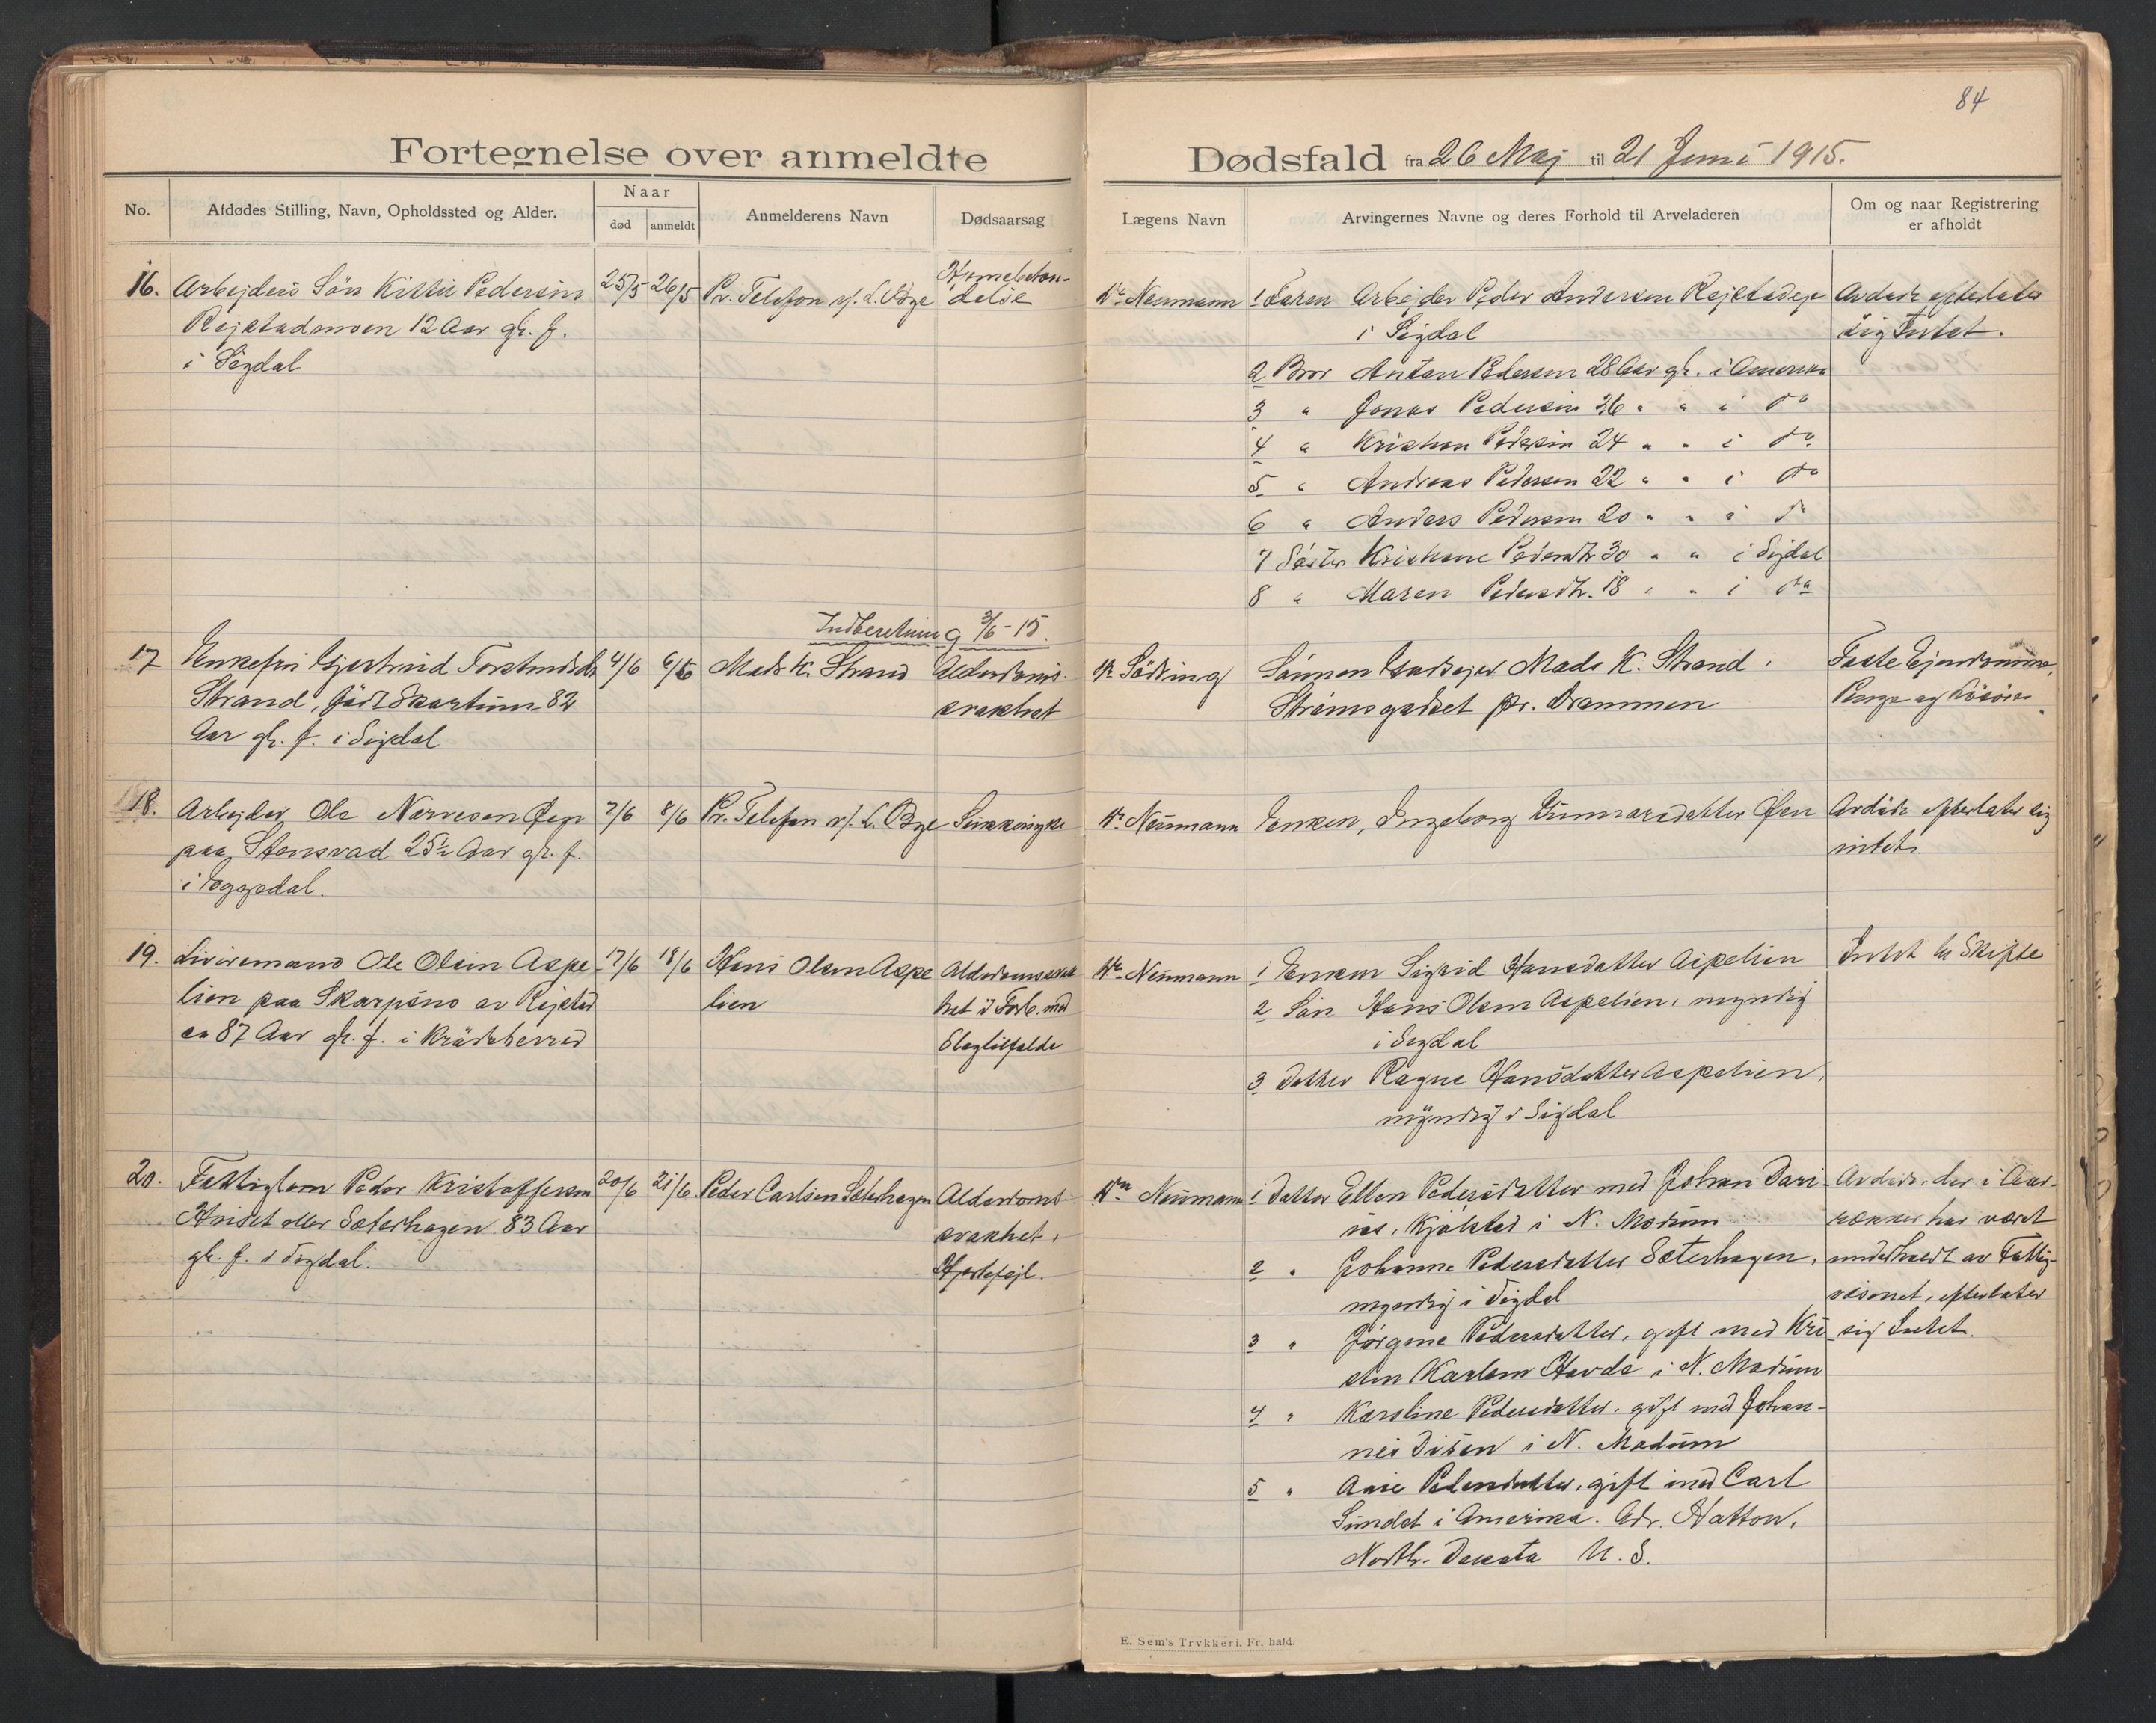 84
Fortegnelse over anmeldte Dødsfald fra 26 Maj til 21 Juni 1915.
No.
Afdødes Stilling, Navn, Opholdssted og Alder.
Naar
død
anmeldt
Anmelderens Navn
Dødsaarsag
Lægens Navn
Arvingernes Navne og deres Forhold til Arveladeren
Om og naar Registrering
er afholdt
16.
Arbejders Søn Kittil Pedersen
Rejstadmoen 12 Aar gl. f.
i Sigdal
25/5
26/5
Pr. Telefon v/ L. Bye
delse
Dr. Neumann
1 Faren Arbejder Peder Andersen
i Sigdal
2 Bror Anton Pedersen 28 Aar gl. i Amerika
3 " Jonas Pedersen 26 " " i do
4 " Kristian Pedersen 24 " " i do
5 " Andreas Pedersen 22 " " i do
6 " Anders Pedersen 20 " " i do
7 Søster Kristiane Pedersdtr. 30 " " i Sigdal
8 " Maren Pedersdtr. 18 " " i do
Avdøde efterlater
sig Intet.
Indberetning 3/6-15.
17
Enkefru Gjertrud
Strand, født Skartum 82
Aar gl. f. i Sigdal
4/6
6/6
Mads K. Strand
Alderdoms-
svakhet
Dr. Sødring
Sønnen Gardejer Mads K. Strand i
Strømsgodset pr. Drammen
Faste Ejendomme,
Penge og Løsøre.
18.
Arbejder Ole Narvesen Øen
paa Stensrad 25½ Aar gl. f.
i Eggedal.
7/6
8/6
Pr. Telefon v/ L. Bye
Sukkersyke
Dr. Neumann
Enken, Ingeborg Gunnarsdatter Øen
Avdøde efterlater sig
intet
19.
Livøremand Ole Olsen Aspe-
lien paa Skarpsno av Rejstad
ca 87 Aar gl. f. i Krødsherred
17/6
18/6
Hans Olsen Aspe
lien
Alderdomssvak
het i Forb. med
Slagtilfælde
Dr. Neumann
1 Enken Sigrid Hansdatter Aspelien
2 Søn Hans Olsen Aspelien, myndig
i Sigdal
3 Datter Ragne Hansdatter Aspelien,
myndig i Sigdal
Intet til Skifte
20.
Fattiglem Peder Kristoffersen
eller Sæterhagen 83 Aar
gl. f. i Sigdal.
20/6
21/6.
Peder Carlsen Sæterhagen
Alderdoms-
svakhet,
Hjertefejl.
Dr. Neumann
1 Datter Ellen Pedersdatter med Johan Dari-
us, Kjølstad i N. Modum
2 " Johanne Pedersdatter Sæterhagen,
myndig i Sigdal
3 " Jørgine Pedersdatter, gift med Kri
sten Karlsen Hovde i N. Modum
4 " Karoline Pedersdatter, gift med Johan-
nes Disen i N. Modum
5 " Aase Pedersdatter, gift med Carl
Sundet i Amerika. Adr. Hatton,
North-Dakota U. S.
Avdøde, der i Aar-
rækker har været
underholdt av Fattig-
væsenet, efterlater
sig Intet.
E. Sem's Trykkeri. Fr. hald.